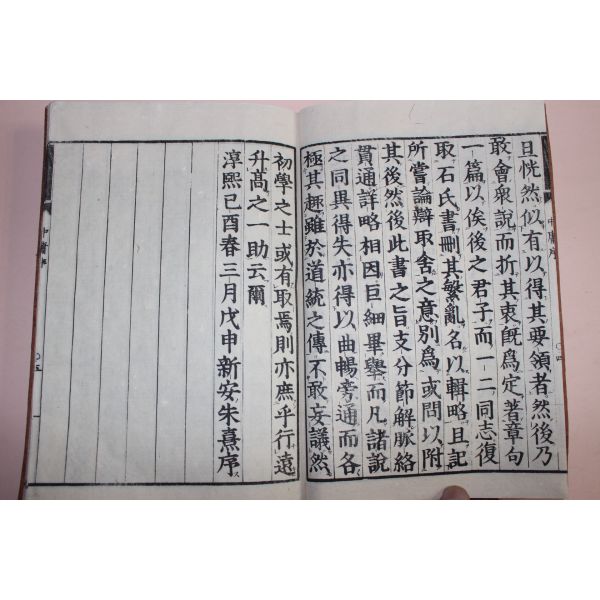 中庸序
旦恍然似有以得其要領者然後乃
敢會衆說而折其衷旣爲定著章句
一篇以俟後之君子而一二同志復
取石氏書刪其繁亂名以輯略且記
所嘗論辯取舍之意別爲或問以附
其後然後此書之旨支分節解脈絡
貫通詳略相因巨細畢擧而凡諸說
之同異得失亦得以曲暢旁通而各
極其趣雖於道統之傳不敢妄議然
初學之士或有取焉則亦庶乎行遠
升高之一助云爾
淳熙己酉春三月戊申新安朱熹序
中庸序